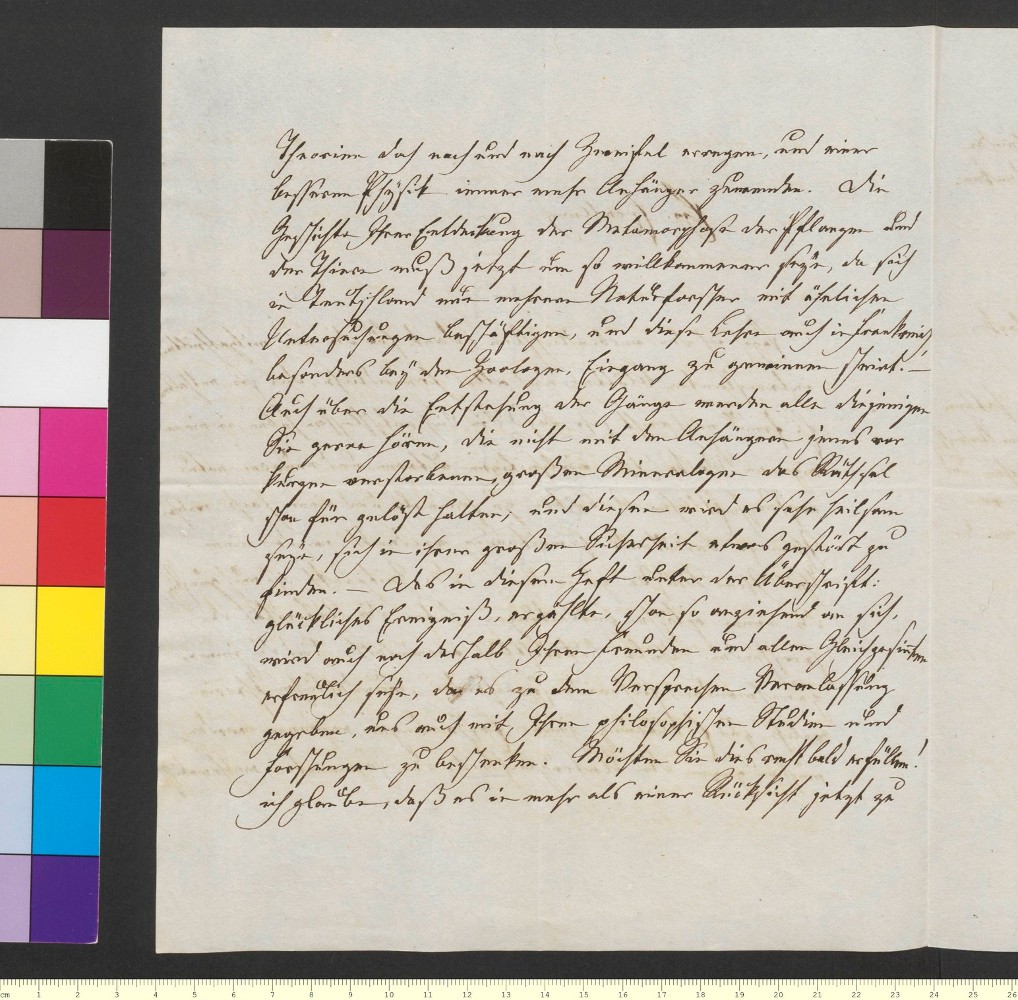 Theorien doch nach und nach Zweifel erregen, und einer
besseren Physik immer mehr Anhänger zuwenden. Die
Geschichte Ihrer Entdeckung der Metamorphose der Pflanzen und
der Thiere muß jetzt um so willkommener seyn, da sich
in Teutschland nun mehrere Naturforscher mit ähnlichen
Untersuchungen beschäftigen, und diese Lehre auch in Frankreich,
besonders bey den Zoologen, Eingang zu gewinnen scheint. —
Auch über die Entstehung der Gänge werden alle diejenigen
Sie gerne hören, die nicht mit den Anhängern jenes vor
kurzen verstorbenen, großen Mineralogen das Räthsel
schon für gelöst halten; und diesen wird es sehr heilsam
seyn, sich in ihrer großen Sicherheit etwas gestört zu
finden. — Das in diesem Heft unter der Überschrift:
glückliches Ereigniß, erzählte, schon so anziehend an sich,
wird auch noch deshalb Ihren Freunden und allen Gleichgesinnten
erfreulich seyn, da es zu dem Versprechen Veranlassung
gegeben, uns auch mit Ihren philosophischen Studien und
Forschungen zu beschenken. Möchten Sie dies recht bald erfüllen!
ich glaube, daß es in mehr als einer Rücksicht jetzt zu